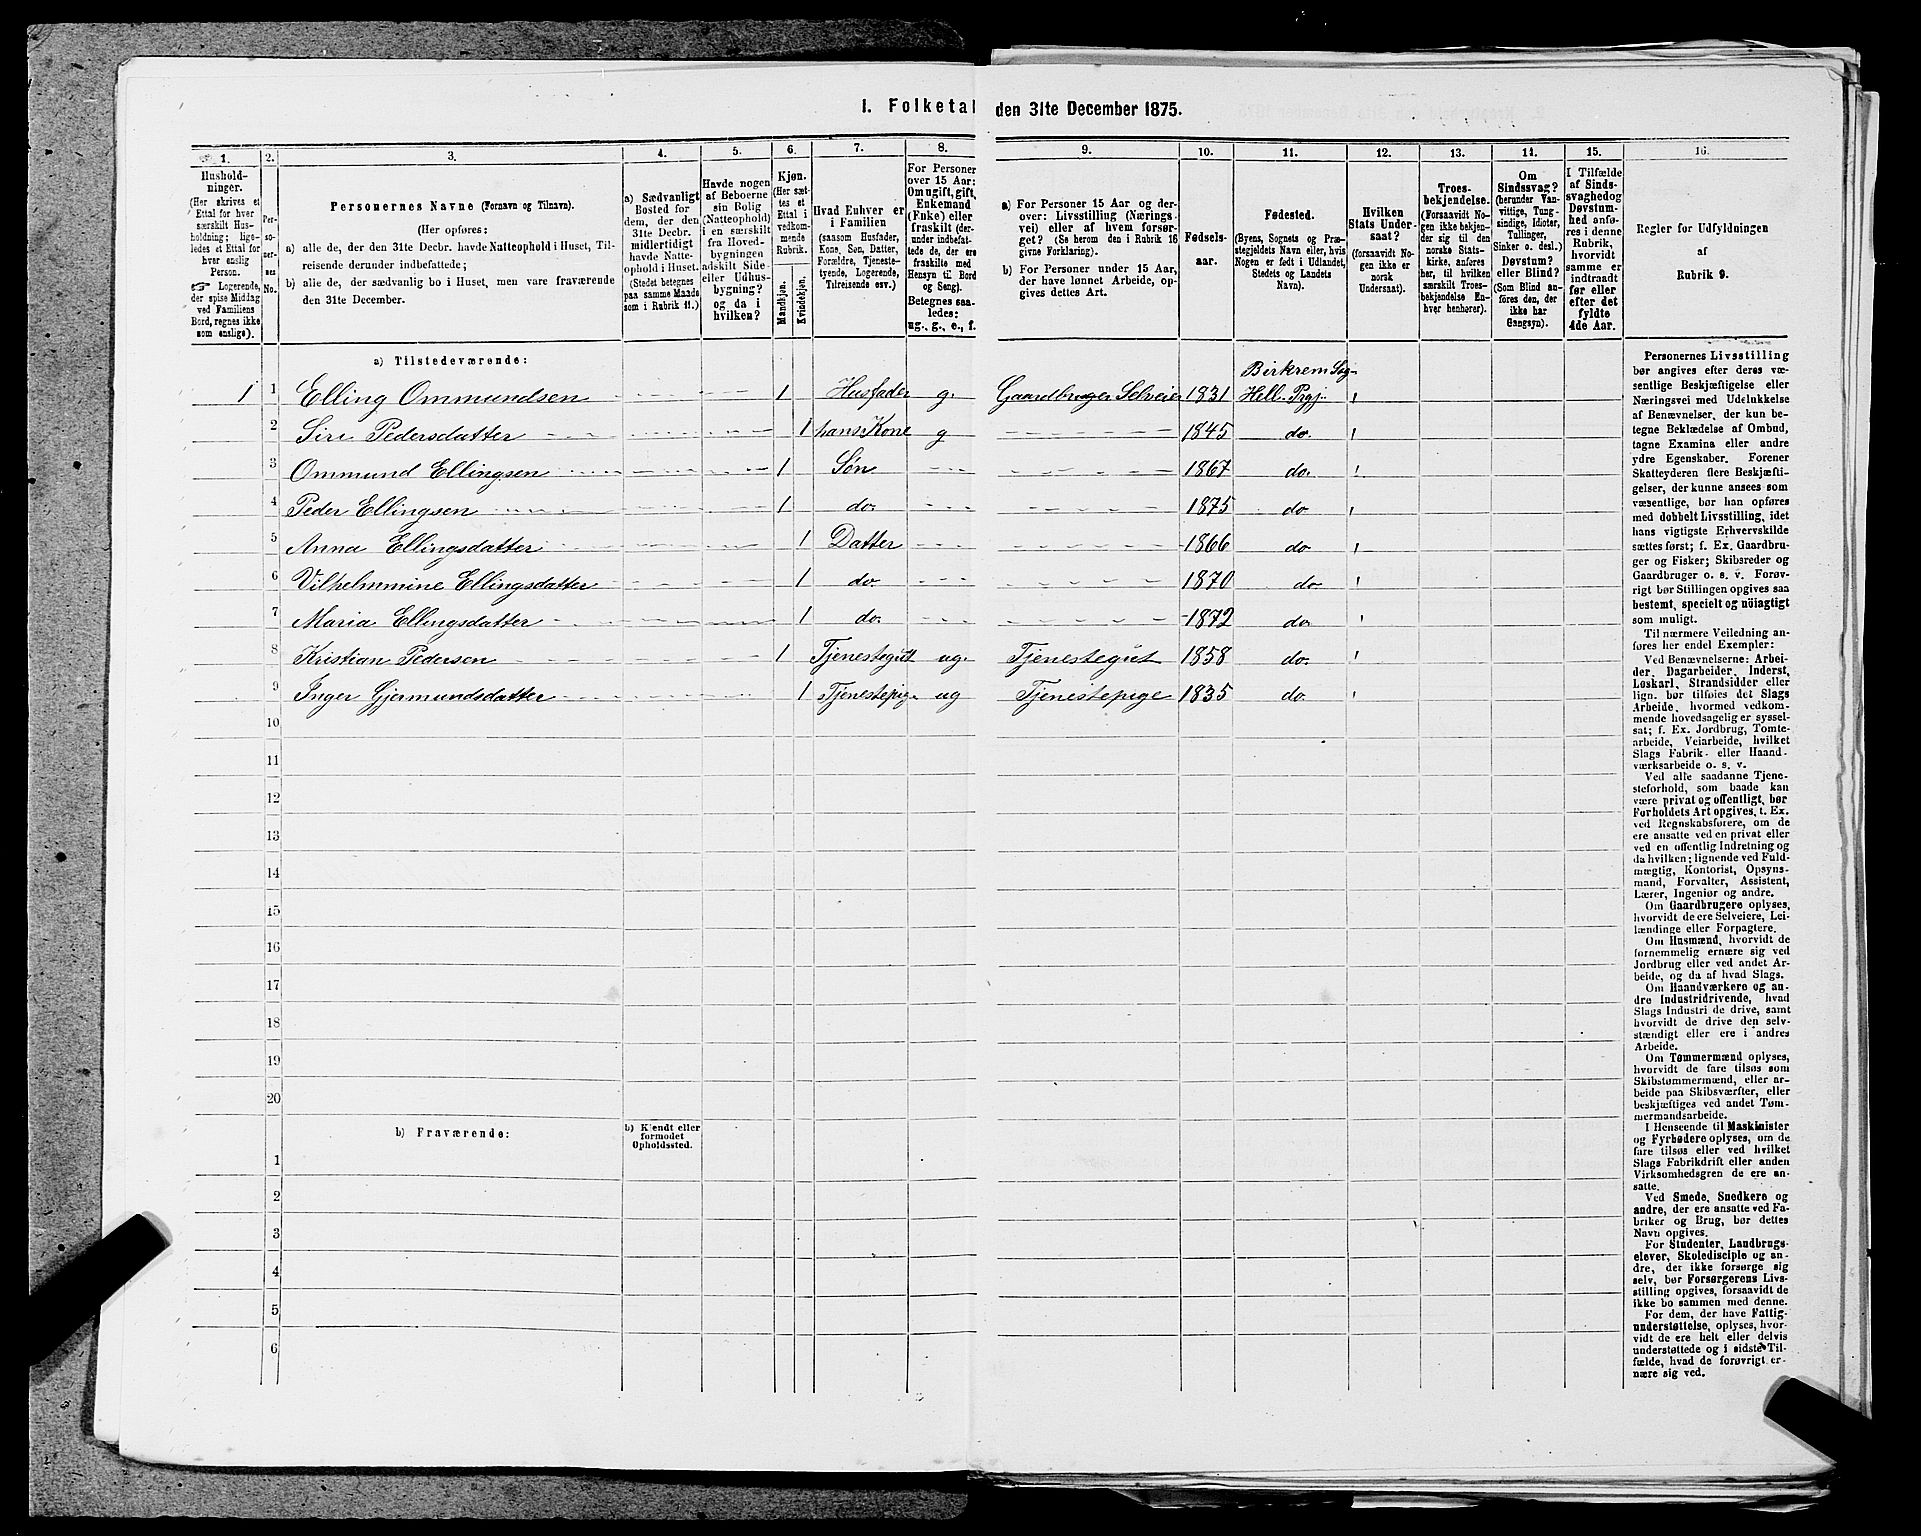 I. Folketal den 31te December 1875.
1. 2. 3. 4. 5. 6. 7. 8. 9. 10. 11. 12. 13. 14. 15. 16.
Hushold-
ninger.
(Her skrives et
Ettal for hver
særskilt Hus-
holdning; lige-
ledes et Ettal for
hver enslig
Person.
☞ Logerende,
der spise Middag
ved Familiens
Bord, regnes ikke
som enslige).
Per-
so-
ner-
nes
No.
Personernes Navne (Fornavn og Tilnavn).
(Her opføres:
a) alle de, der den 31te Decbr. havde Natteophold i Huset, Til-
reisende derunder indbefattede;
b) alle de, der sædvanlig bo i Huset, men vare fraværende
den 31te December.
a) Sædvanligt
Bosted for
dem, der den
31te Decbr.
midlertidigt
havde Natte-
ophold i Huset.
(Stedet betegnes
paa samme Maade
som i Rubrik 11.)
Havde nogen
af Beboerne
sin Bolig
(Natteophold)
i en særskilt
fra Hoved-
bygningen
adskilt Side-
eller Udhus-
bygning?
og da i
hvilken?
Kjøn.
(Her sæt-
tes et
Ettal i
vedkom-
mende
Rubrik.
Mandkjøn.
Kvindekjøn.
Hvad Enhver er
i Familien
(saasom Husfader,
Kone, Søn, Datter,
Forældre, Tjeneste-
tyende, Logerende,
Tilreisende osv.)
For Personer
over 15 Aar:
Om ugift, gift,
Enkemand
(Enke) eller
fraskilt (der-
under indbefat-
tede de, der ere
fraskilte med
Hensyn til Bord
og Seng).
Betegnes saa-
ledes:
ug., g., e., f.
a) For Personer 15 Aar og der-
over: Livsstilling (Nærings-
vei) eller af hvem forsør-
get? (Se herom den i Rubrik 16
givne Forklaring).
b) For Personer under 15 Aar,
der have lønnet Arbeide, op-
gives dettes Art.
Fødsels-
aar.
Fødested.
(Byens, Sognets og Præ-
stegjeldets Navn eller, hvis
Nogen er født i Udlandet,
Stedets og Landets
Navn).
Hvilken
Stats Under-
saat?
(forsaavidt No-
gen ikke er
norsk
Undersaat).
Troes-
bekjendelse.
(Forsaavidt No-
gen ikke bekjen-
der sig til den
norske Stats-
kirke, anføres
her, til hvilken
særskilt Troes-
bekjendelse En-
hver henhører).
Om
Sindssvag?
(herunder Van-
vittige, Tung-
sindige, Idioter,
Tullinger,
Sinker o. desl.)
Døvstum?
eller Blind?
(Som Blind an-
føres den, der
ikke har
Gangsyn).
I Tilfælde
af Sinds-
svaghed og
Døvstum-
hed anfø-
res i denne
Rubrik,
hvorvidt
samme er
indtraadt
før eller
efter det
fyldte
4de Aar.
Regler for Udfyldningen
af
Rubrik 9.
a) Tilstedeværende:
Birkrem Sog-
1 1 Elling Ommundsen 1 Husfader g. Gaardbruger Selveier 1831 Hell. Prgj.
2 Siri Pedersdatter 1 hans Kone g 1845 do.
3 Ommund Ellingsen 1 Søn 1867 do.
4 Peder Ellingsen 1 do. 1875 do
5 Anna Ellingsdatter 1 Datter 1866 do
6 Vilhelmmine Ellingsdatter 1 do. 1870 do
7 Maria Ellingsdatter 1 do. 1872 do.
8 Kristian Pedersen 1 Tjenestegut ug. Tjenestegut 1858 do.
9 Inger Gjermundsdatter 1 Tjenestepige ug Tjenestepige 1835 do.
10
11
12
13
14
15
16
17
18
19
20
b) Fraværende:
b) Kjendt eller
formodet
Opholdssted.
1
2
3
4
5
6
Personernes Livsstilling
bør angives efter deres væ-
sentlige Beskjæftigelse eller
Næringsvei med Udelukkelse
af Benævnelser, der kun be-
tegne Beklædelse af Ombud,
tagne Examina eller andre
ydre Egenskaber. Forener
Skatteyderen flere Beskjæfti-
gelser, der kunne ansees som
væsentlige, bør han opføres
med dobbelt Livsstilling, idet
hans vigtigste Erhvervskilde
sættes først; f. Ex. Gaardbru-
ger og Fisker; Skibsreder og
Gaardbruger o. s. v. Forøv-
rigt bør Stillingen opgives saa
bestemt, specielt og nöiagtigt
som muligt.
Til nærmere Veiledning an-
føres her endel Exempler:
Ved Benævnelserne: Arbei-
der, Dagarbeider, Inderst,
Løskarl, Strandsidder eller
lign. bør tilføies det Slags
Arbeide, hvormed vedkom-
mende hovedsagelig er syssel-
sat; f. Ex. Jordbrug, Tomte-
arbeide, Veiarbeide, hvilket
Slags Fabrik- eller Haand-
værksarbeide o. s. v.
Ved alle saadanne Tjene-
steforhold, som baade kan
være privat og offentligt, bør
Forholdets Art opgives, t. Ex.
ved Regnskabsførere, om de
ere ansatte ved en privat eller
ved en offentlig Indretning og
da hvilken; lignende ved Fuld-
mægtig, Kontorist, Opsyns-
mand, Forvalter, Assistent,
Lærer, Ingeniør og andre.
Om Gaardbrugere oplyses,
hvorvidt de ere Selveiere, Lei-
lændinge eller Forpagtere.
Om Husmænd, hvorvidt de
fornemmelig ernære sig ved
Jordbrug eller ved andet Ar-
beide, og da af hvad Slags.
Om Haandværkere og an-
dre Industridrivende, hvad
Slags Industri de drive, samt
hvorvidt de drive den selv-
stændigt eller ere i andres
Arbeide.
Om Tømmermænd oplyses,
hvorvidt de fare tilsøs som
Skibstømmermænd, eller ar-
beide paa Skibsværfter, eller
beskjæftiges ved andet Tøm-
mermandsarbeide.
I Henseende til Maskinister
og Fyrbødere oplyses, om de
fare tilsøs eller ved hvilket
Slags Fabrikdrift eller anden
Virksomhedsgren de ere an-
satte.
Ved Smede, Snedkere og
andre, der ere ansatte ved Fa-
briker og Brug, bør dettes
Navn opgives.
For Studenter, Landbrugs-
elever, Skoledisciple og an-
dre, der ikke forsørge sig
selv, bør Forsørgerens Livs-
stilling opgives, forsaavidt de
ikke bo sammen med denne.
For dem, der have Fattig-
understøttelse, oplyses, hvor-
vidt de ere helt eller delvis
understøttede og i sidste Til-
fælde, hvad de forøvrigt er-
nære sig ved.